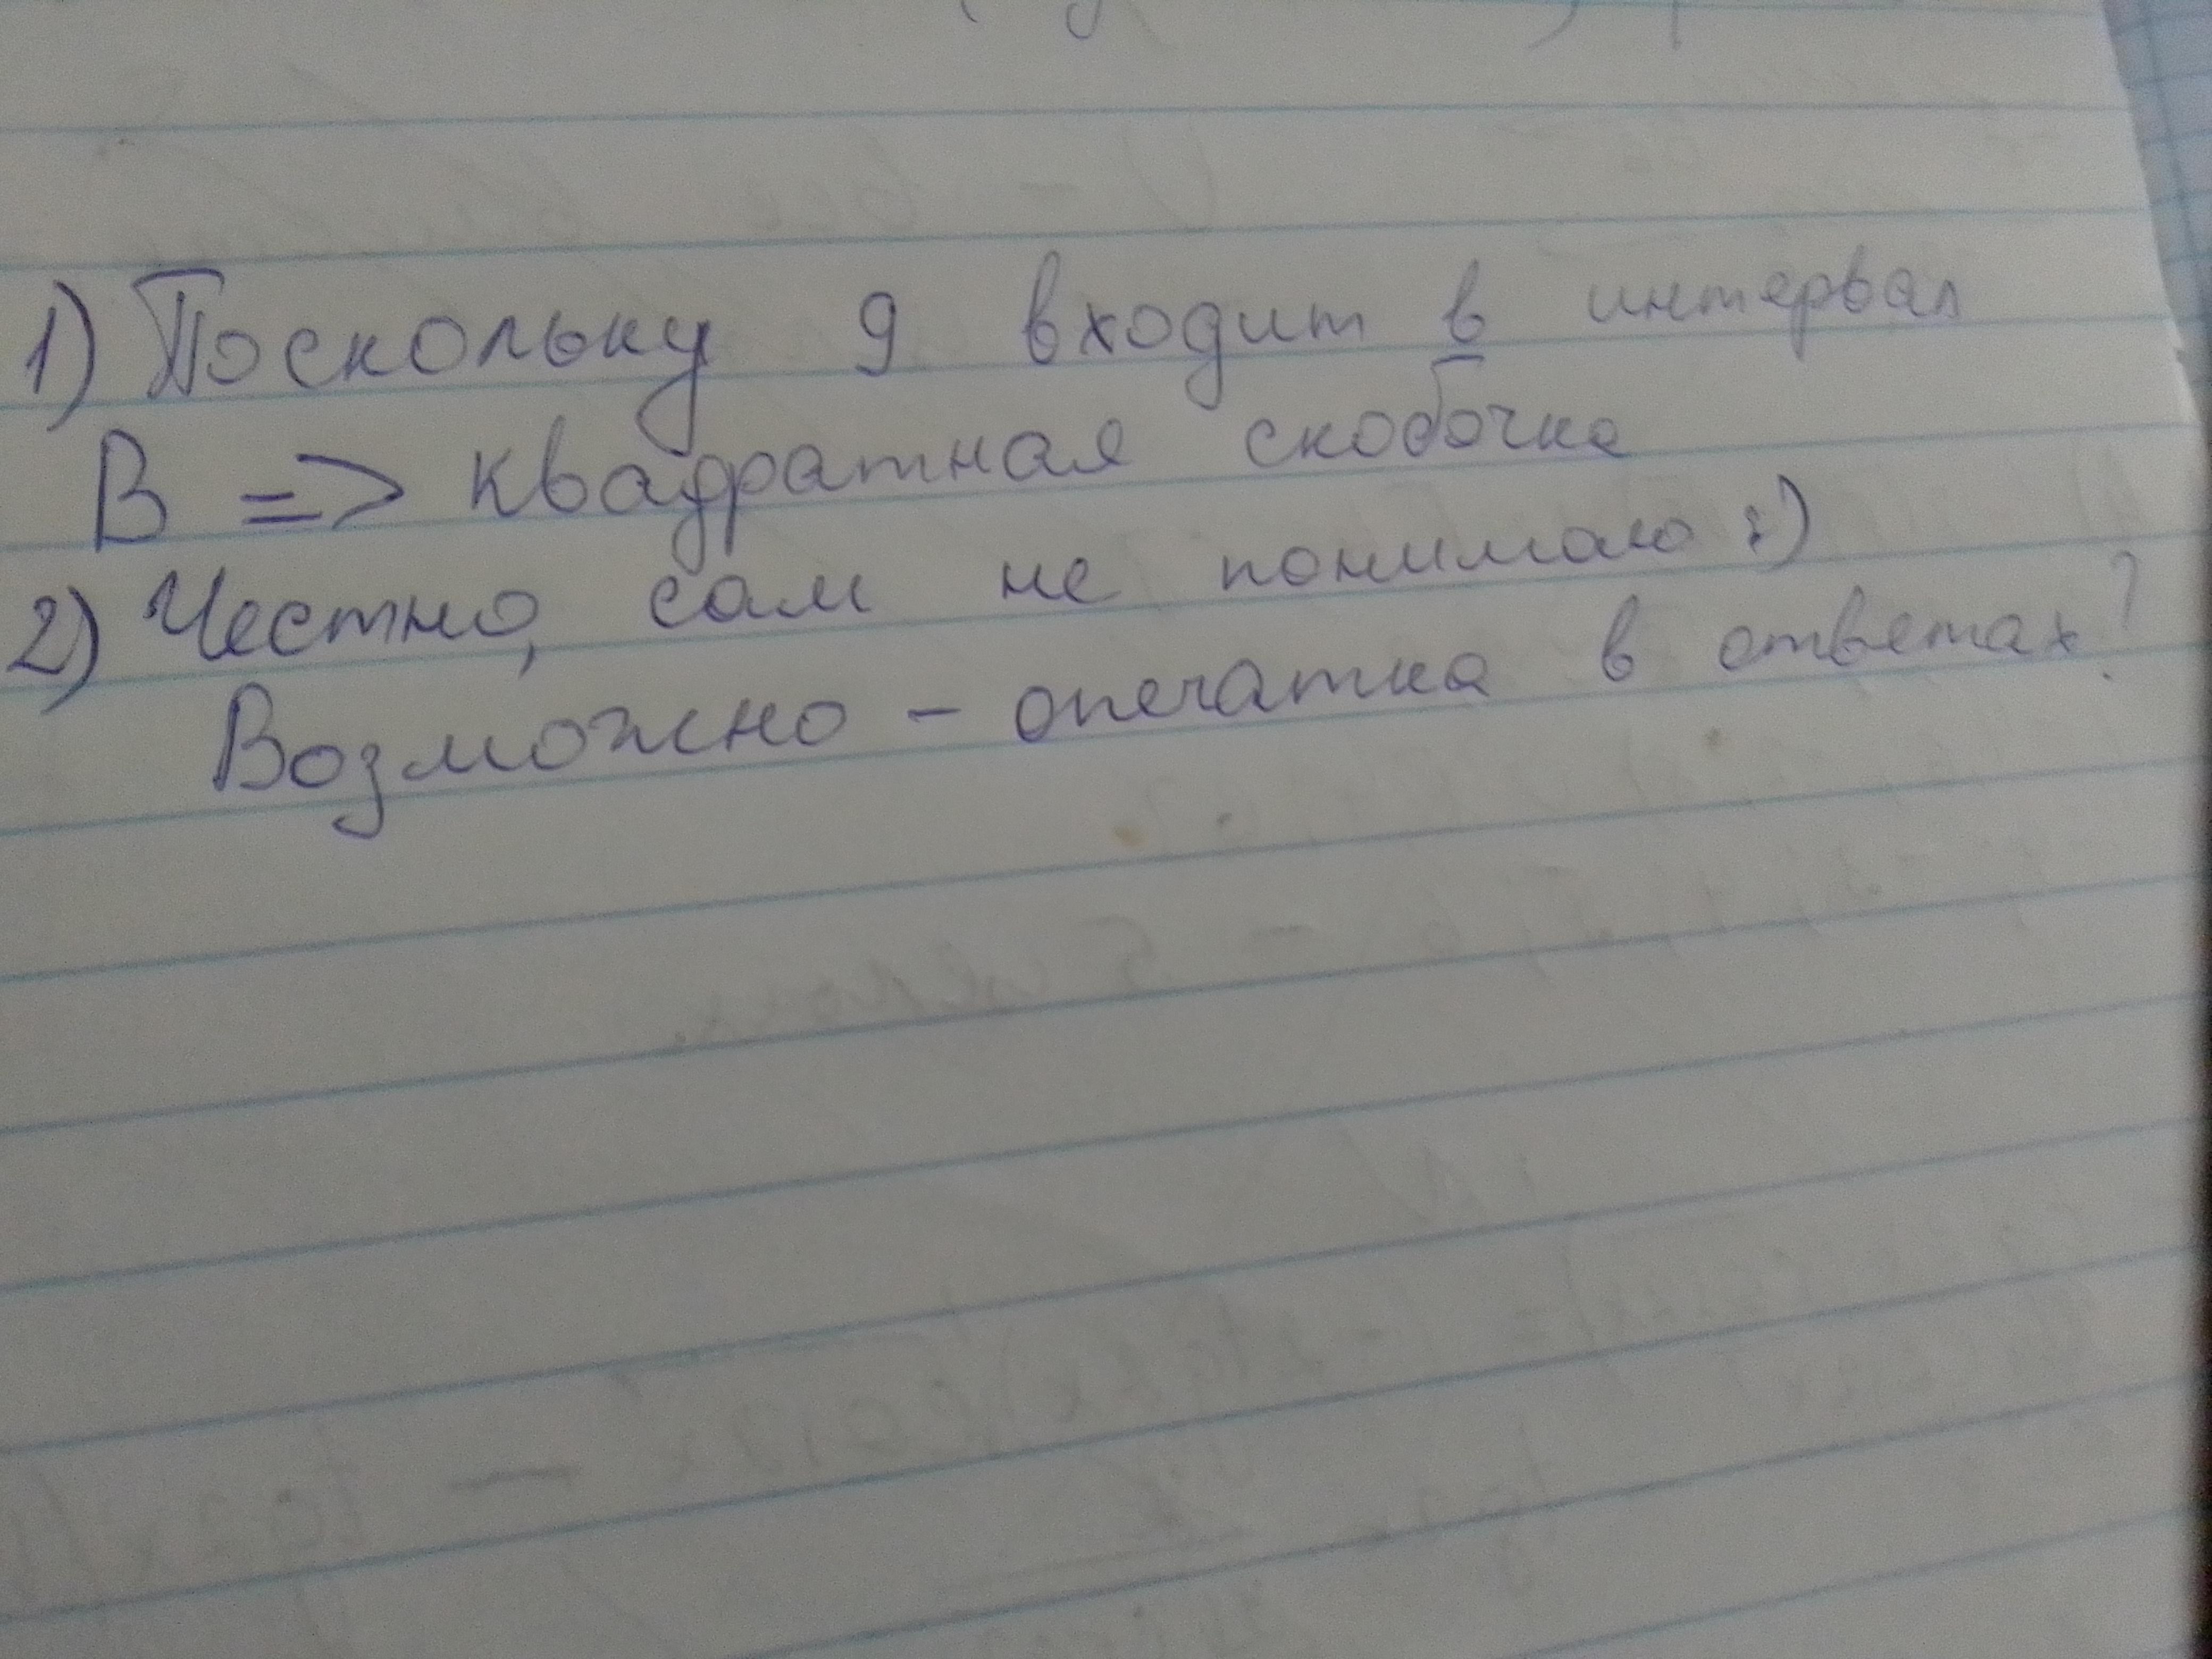 1) Поскольку 9 входит в интервал
В => квадратная скобочка
2) Честно, сам не понимаю :)
Возможно - опечатка в ответах?